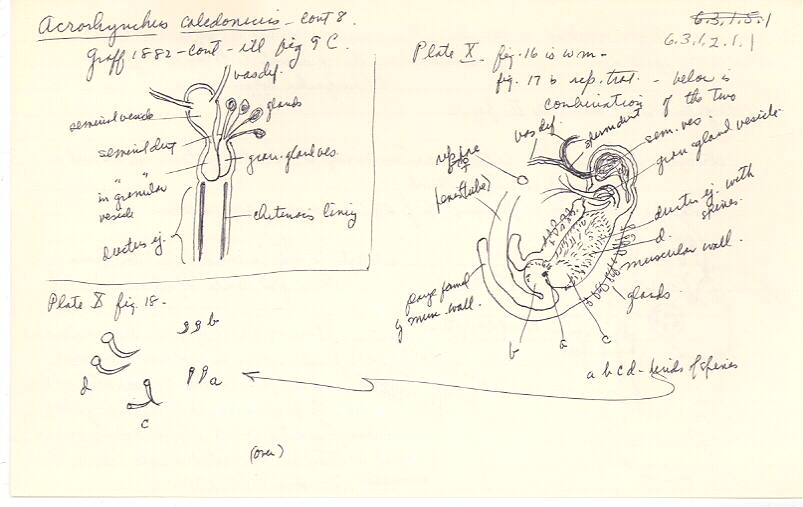 Acrorhynchus caledonicus - cont 8.
Graff 1882 - cont - itl fig 9 C.
vas def.
glands
seminal vesicle
seminal duct
" " in granular vesicle
gran. gland ves.
ductus ej.
chitenois lining
6.3.1.5.1
6.3.1.2.1.1
Plate X. fig. 16 is w m -
fig. 17 is rep. trat. - below is
combination of the two
vas def.
sperm duct
sem. ves.
gran. gland vesicle
♀
ductus ej. with spines
d.
muscular wall.
glands
of mus. wall.
b
a
c
a b c d - kinds of spines
Plate X fig. 18.
b
d
a
c
(over)